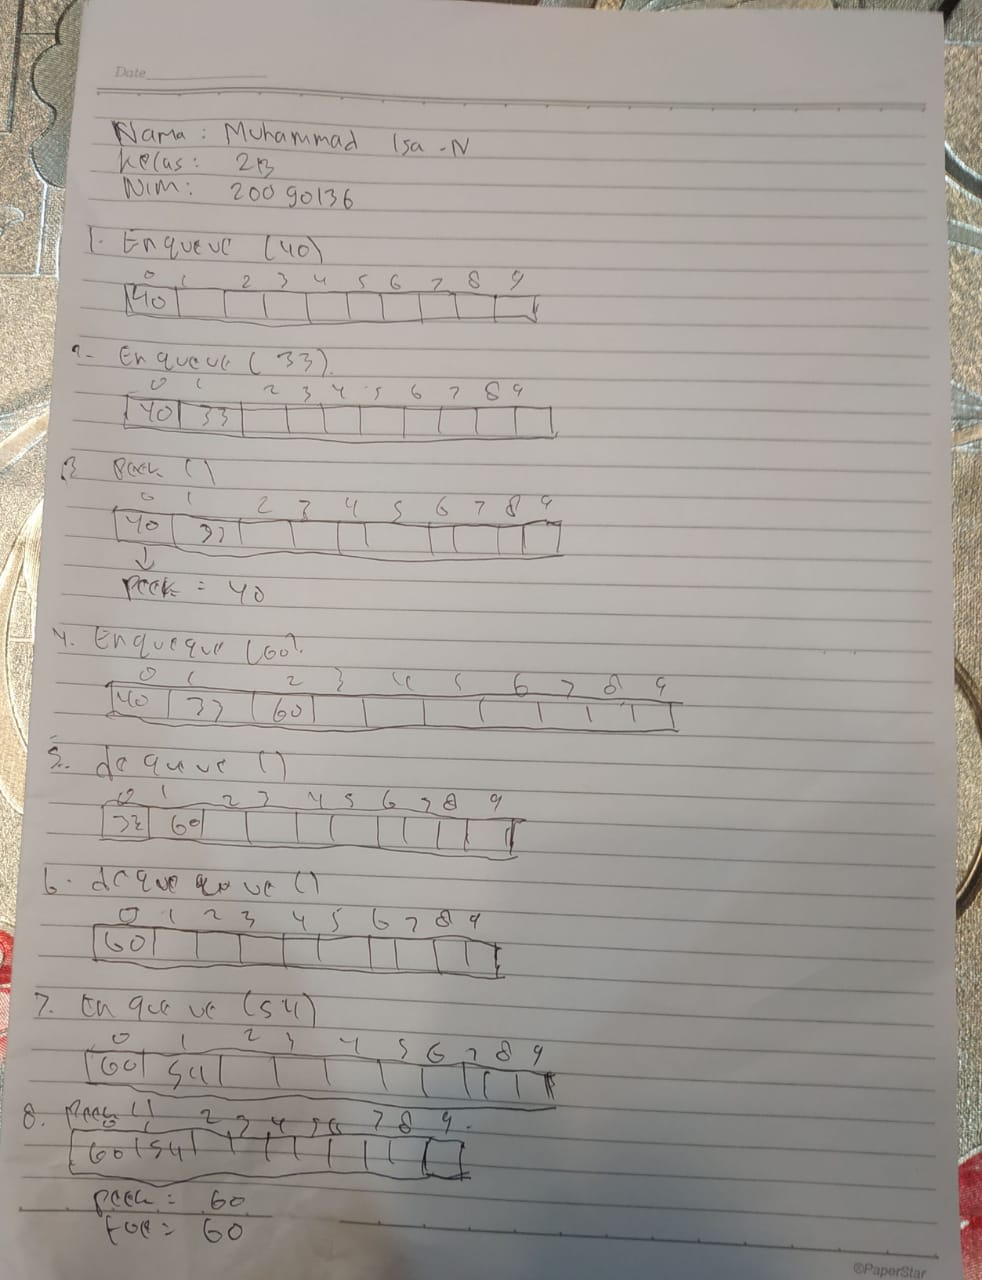 Date
Nama : Muhammad Isa -N
Kelas : 2B
Nim : 20090136
1. Enqueue (40)
0 1 2 3 4 5 6 7 8 9
40
2. Enqueue (33).
0 1 2 3 4 5 6 7 8 9
40 33
3. Peek ()
0 1 2 3 4 5 6 7 8 9
40 33
peek = 40
4. Enqueque (60).
0 1 2 3 4 5 6 7 8 9
40 33 60
5. dequeue ()
0 1 2 3 4 5 6 7 8 9
33 60
6. deque ()
0 1 2 3 4 5 6 7 8 9
60
7. Enqueue (54)
0 1 2 3 4 5 6 7 8 9
60 54
8. Peek ()
0 1 2 3 4 5 6 7 8 9.
60 54
peek = 60
= 60
©PaperStar